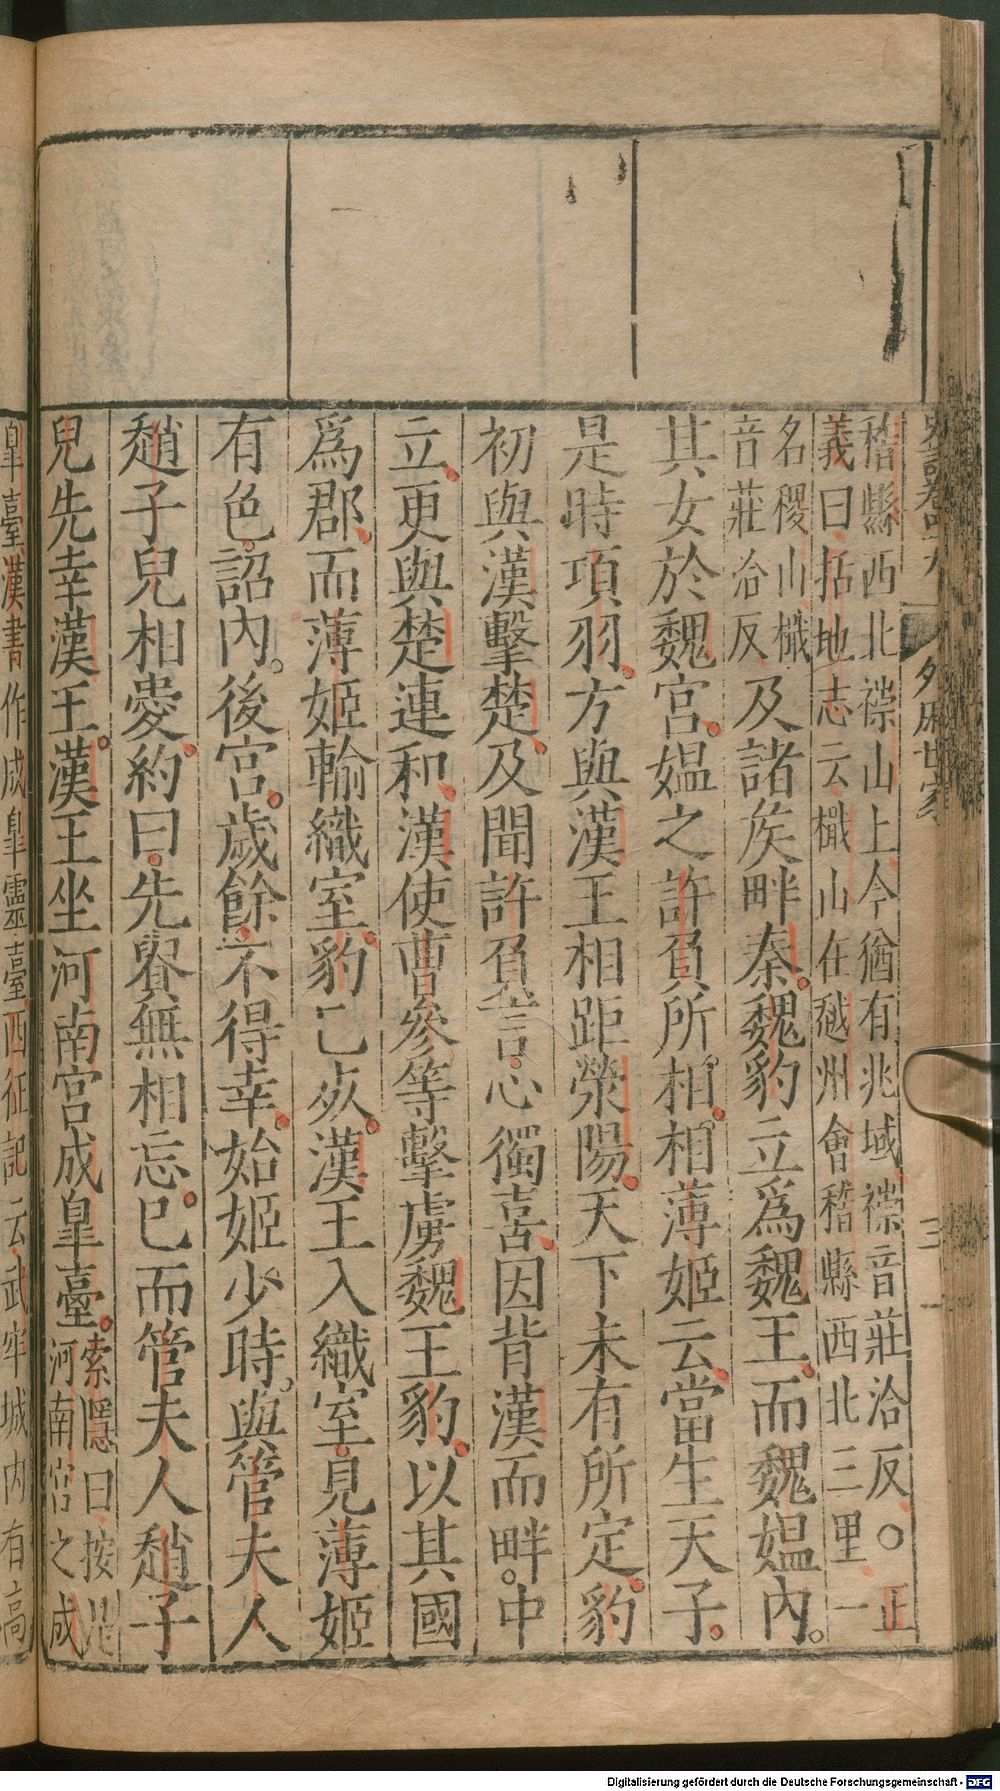 史記卷四十九 外戚世家 三
稽縣西北禖山上今猶有兆域禖音莊洽反○正
義曰括地志云檝山在越州會稽縣西北三里一
名稷山檝
音莊洽反
及諸矦畔秦。魏豹立爲魏王。而魏媼內。
其女於魏宮。媼之許負所相。相薄姬云、當生天子。
是時項羽。方與漢王相距滎陽。天下未有所定。豹
初與漢擊楚、及聞許負言。心獨喜、因背漢而畔。中
立、更與楚連和、漢使曹參等擊虜魏王豹。以其國
爲郡、而薄姬輸織室、豹已死。漢王入織室。見薄姬
有色。詔內。後宮。歲餘不得幸。始姬少時。與管夫人
趙子兒相愛、約曰。先貴無相忘。已而管夫人趙子
兒先幸漢王。漢王坐河南宮成皐臺。
索隱曰按是
河南宮之成
皐臺漢書作成皐靈臺西征記云武牢城内有高
Digitalisierung gefördert durch die Deutsche Forschungsgemeinschaft - DFG